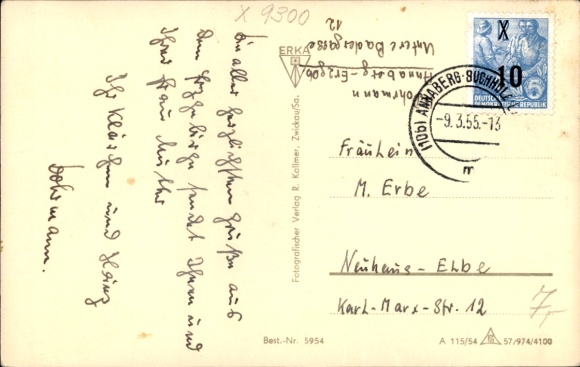 X 9300
Die allerherzlichsten Grüße aus
dem Erzgebirge sendet Ihnen und
Ihrer Frau Mutter
Ihr Klärchen und Heinz
Dohrmann.
ERKA
Dohrmann
Annaberg-Erzgeb
Untere Badergasse
12
Fotografischer Verlag R. Kallmer, Zwickau/Sa.
X
10
DEUTSCHE
DEMOKRATISCHE REPUBLIK
5
(10b) ANNABERG-BUCHHOLZ
-9.3.55.-13
m
Fräulein
M. Erbe
Neuhaus-Elbe
Karl-Marx-Str. 12
7,-
Best.-Nr. 5954
A 115/54
57/974/4100